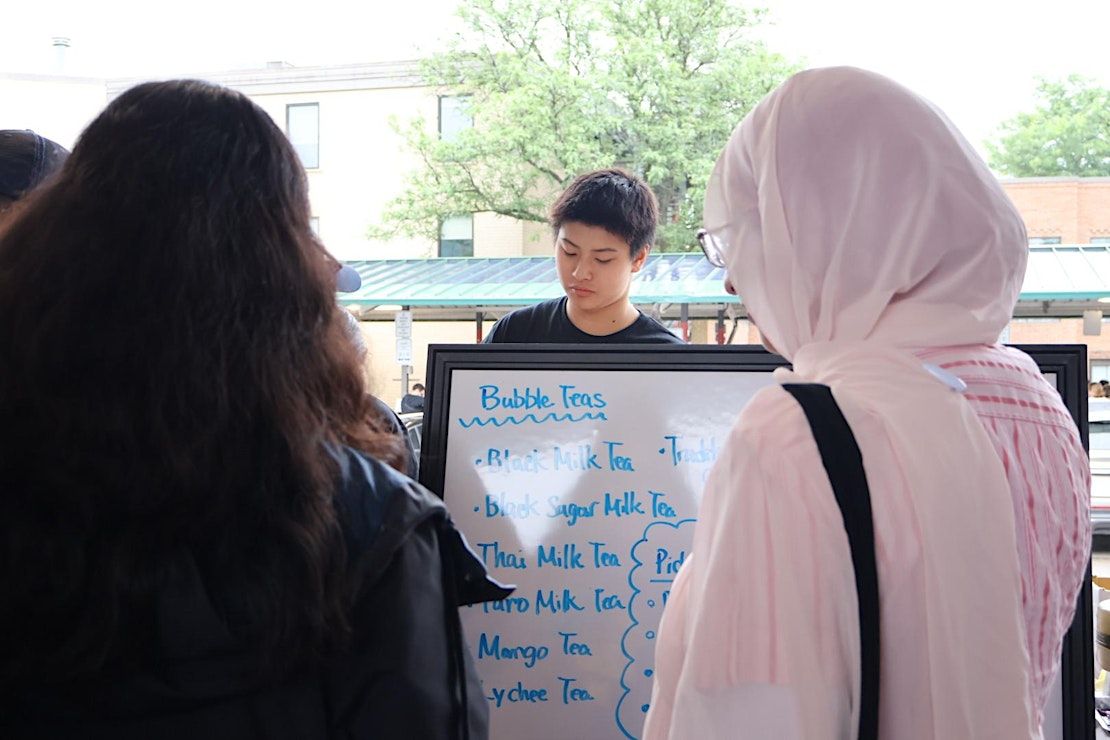 Bubble Teas
• Black Milk Tea
• Black Sugar Milk Tea
Thai Milk Tea
Taro Milk Tea
Mango Tea
Lychee Tea